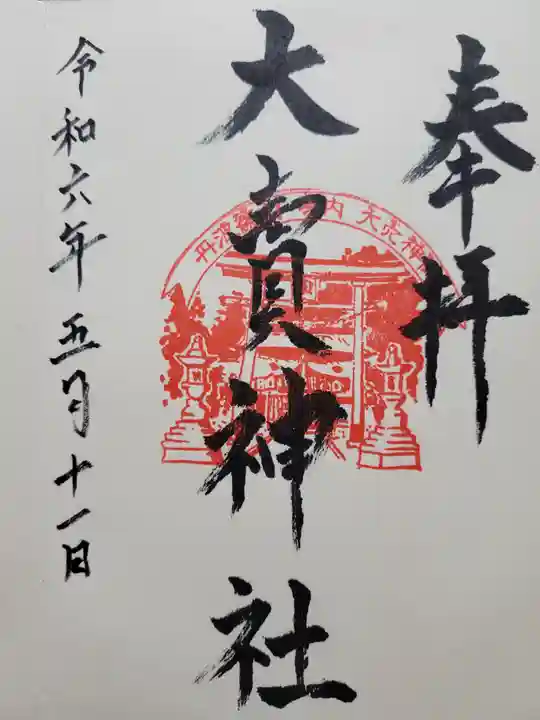 奉拝
大賣神社
丹波 内 大売神
令和六年五月十一日